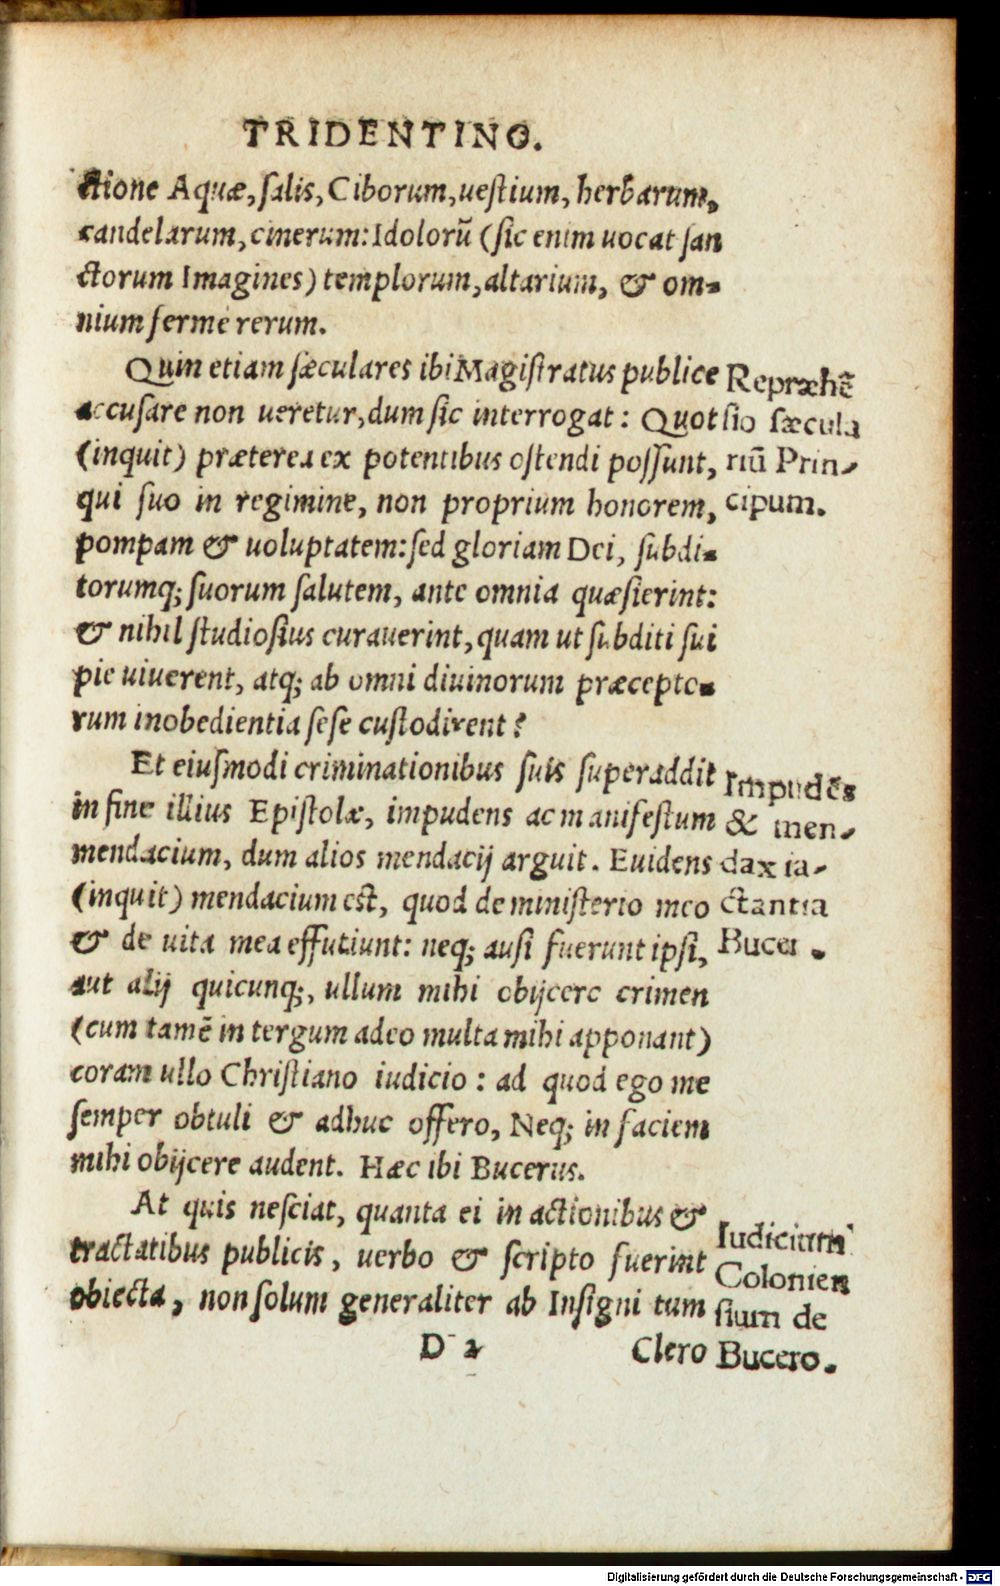 TRIDENTINO.
ctione Aquæ, ſalis, Ciborum, ueſtium, herbarum,
candelarum, cinerum: Idolorũ (ſic enim uocat ſan
ctorum Imagines) templorum, altarium, & om-
nium fermè rerum.
Quin etiam ſæculares ibi Magiſtratus publice
accuſare non ueretur, dum ſic interrogat: Quot
(inquit) præterea ex potentibus oſtendi poſſunt,
qui ſuo in regimine, non proprium honorem,
pompam & uoluptatem: ſed gloriam Dei, ſubdi-
torumq; ſuorum ſalutem, ante omnia quæſierint:
& nihil ſtudioſius curauerint, quam ut ſubditi ſui
pie uiuerent, atq; ab omni diuinorum præcepto-
rum inobedientia ſeſe cuſtodirent?
Repræhẽ
ſio ſæcula
riũ Prin-
cipum.
Et eiuſmodi criminationibus ſuis ſuperaddit
in fine illius Epiſtolæ, impudens ac manifeſtum
mendacium, dum alios mendacij arguit. Euidens
(inquit) mendacium eſt, quod de miniſterio meo
& de uita mea effutiunt: neq; auſi fuerunt ipſi,
aut alij quicunq;, ullum mihi obijcere crimen
(cum tamẽ in tergum adeo multa mihi apponant)
coram ullo Chriſtiano iudicio: ad quod ego me
ſemper obtuli & adhuc offero, Neq; in faciem
mihi obijcere audent. Hæc ibi Bucerus.
Impudẽs
& men-
dax ia-
ctantia
Buceri.
At quis neſciat, quanta ei in actionibus &
tractatibus publicis, uerbo & ſcripto fuerint
obiecta, non ſolum generaliter ab Inſigni tum
Iudicium
Colonien
ſium de
Bucero.
D 2
Clero
Digitalisierung gefördert durch die Deutsche Forschungsgemeinschaft - DFG